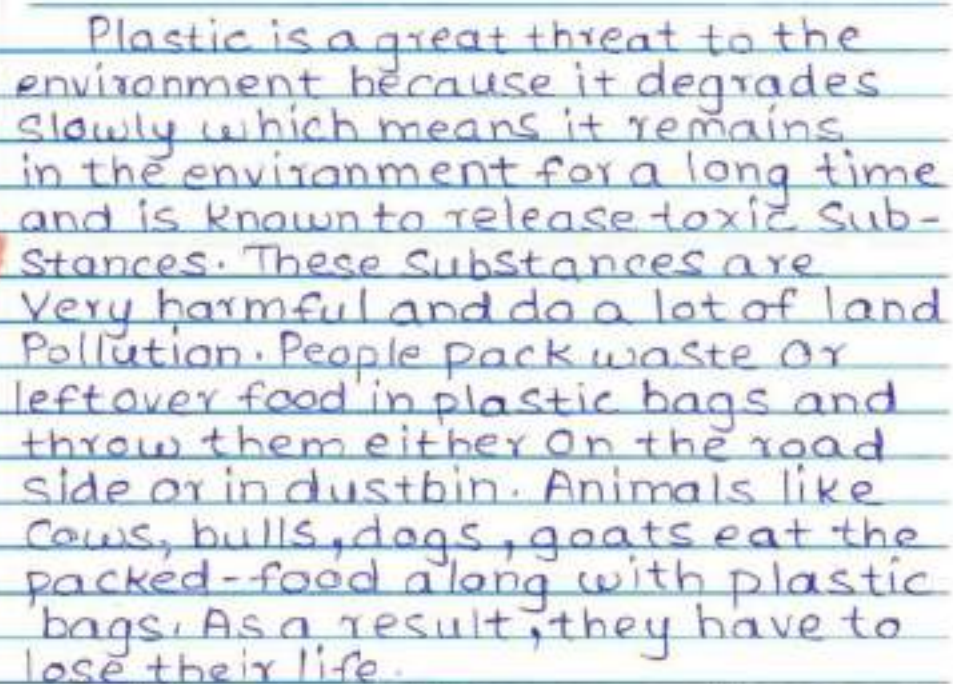 Plastic is a great threat to the
environment because it degrades
slowly which means it remains
in the environment for a long time
and is known to release toxic Sub-
stances. These substances are
very harmful and do a lot of land
Pollution. People pack waste or
leftover food in plastic bags and
throw them either on the road
side or in dustbin. Animals like
Cows, bulls, dogs, goats eat the
packed-food along with plastic
bags. As a result, they have to
lose their life.